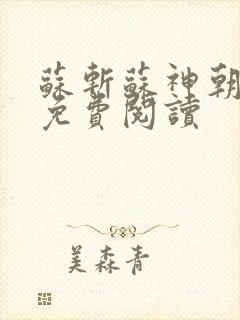 蘇斬蘇神朝
免費閱讀
美森青